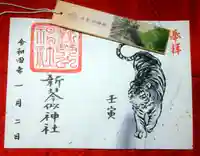 奉拝
壬寅
新琴似神社
令和四年一月二日